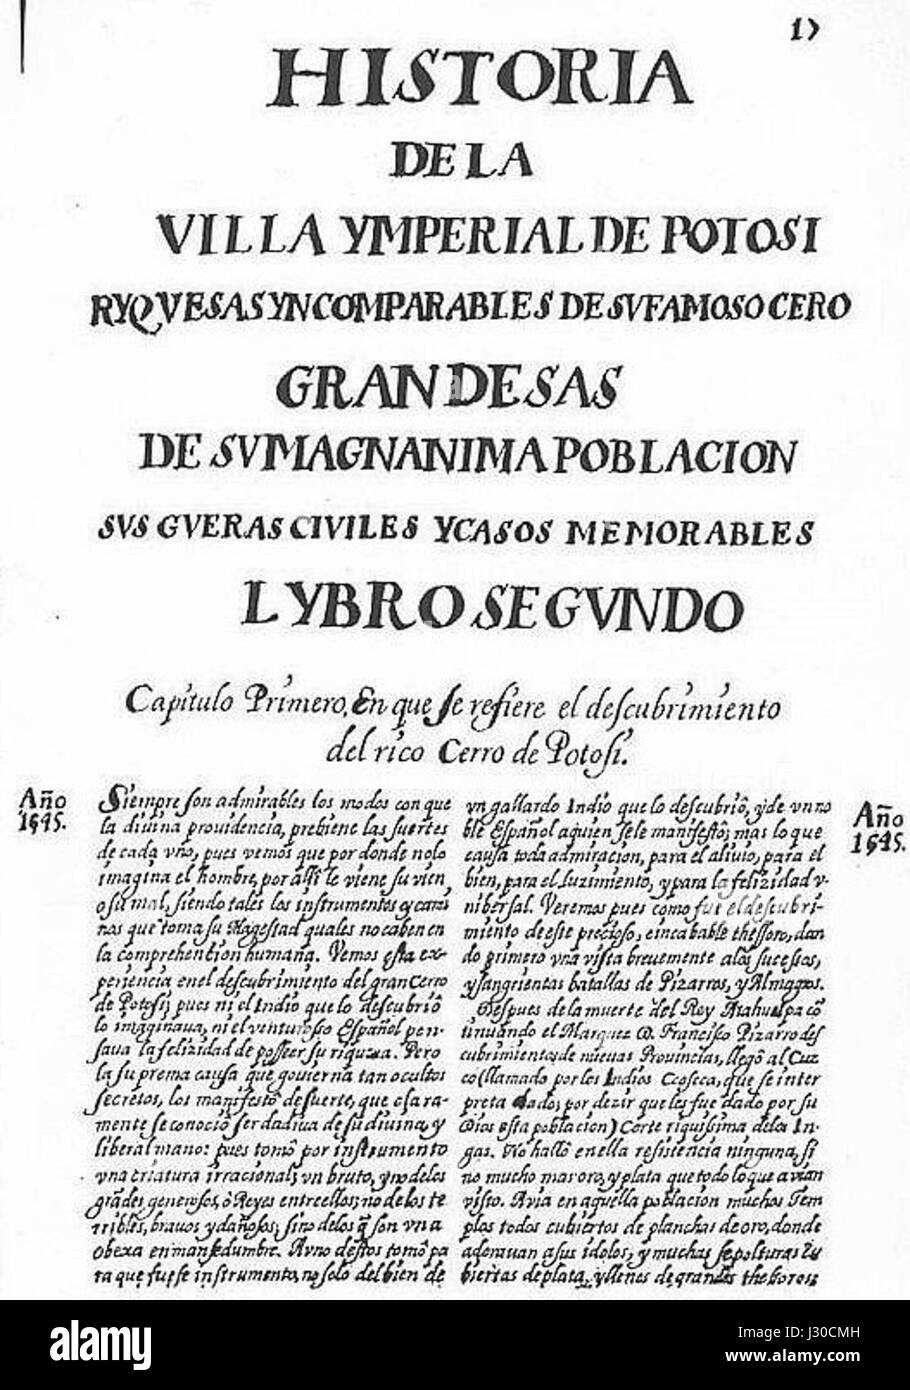 17
HISTORIA
DE LA
VILLA YMPERIAL DE POTOSI
RYQVESAS YNCOMPARABLES DE SV FAMOSO CERO
GRANDESAS
DE SV MAGNANIMA POBLACION
SVS GVERAS CIVILES Y CASOS MEMORABLES
LYBRO SEGVNDO
Capitulo Primero, En que se refiere el descubrimiento
del rico Cerro de Potosi.
Año
1545.
Siempre son admirables los modos con que
la divina providencia, prebiene las suertes
de cada vno, pues vemos que por donde nolo
imagina el hombre, por alli le viene su vien
o su mal, siendo tales los instrumentos y cami
nos que toma su Magestad quales no caben en
la comprehencion humana. Vemos esta ex-
periencia en el descubrimiento del gran Cerro
de Potosi; pues ni el Indio que lo descubriô
lo imaginava, ni el venturoso Español pen-
sava la felizidad de posseer su riqueza. Pero
la suprema causa que govierna tan ocultos
secretos, los manifestô de suerte, que clara-
mente se conociô ser dadiva de su divina, y
liberal mano: pues tomô por instrumento
vna criatura irracional; vn bruto, y no de los
grãdes generosos, ô Reyes entre ellos; no de los te
rribles, bravos y dañosos; sino de los q̃ son vna
obexa en mansedumbre. Avno destos tomô pa
ra que fuese instrumento, no solo del bien de
vn gallardo Indio que lo descubriô, y de vn no
ble Español aquien sele manifestô; mas lo que
causa toda admiracion, para el alivio, para el
bien, para el luzimiento, y para la felizidad v-
nibersal. Veremos pues como fue el descubri-
miento de este precioso, e incabable thessoro, dan
do primero vna vista brevemente alos sucessos,
y sangrientas batallas de Pizarros, y Almagros.
Despues de la muerte del Rey Atahualpa cõ
tinuando el Marquez D. Francisco Pizarro des
cubrimientos de nuevas Provincias, llegô al Cuz
co (llamado por los Indios Ccosco, que se inter
preta dado; por dezir que les fue dado por su
Dios esta poblacion) Corte riquissima delos In-
gas. No hallô en ella resistencia ninguna, si
no mucho mas oro, y plata que todo lo que avian
visto. Avia en aquella poblacion muchos Tem
plos todos cubiertos de planchas de oro, donde
adoravan a sus idolos, y muchas sepolturas cu
biertas de plata, y llenos de grandes thesoros;
Año
1545.
alamy stock photo
J30CMH
www.alamy.com